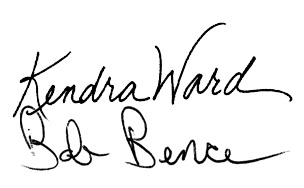 Kendra Ward
Bob Bence